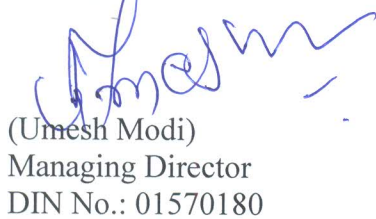 (Umesh Modi)
Managing Director
DIN No.: 01570180